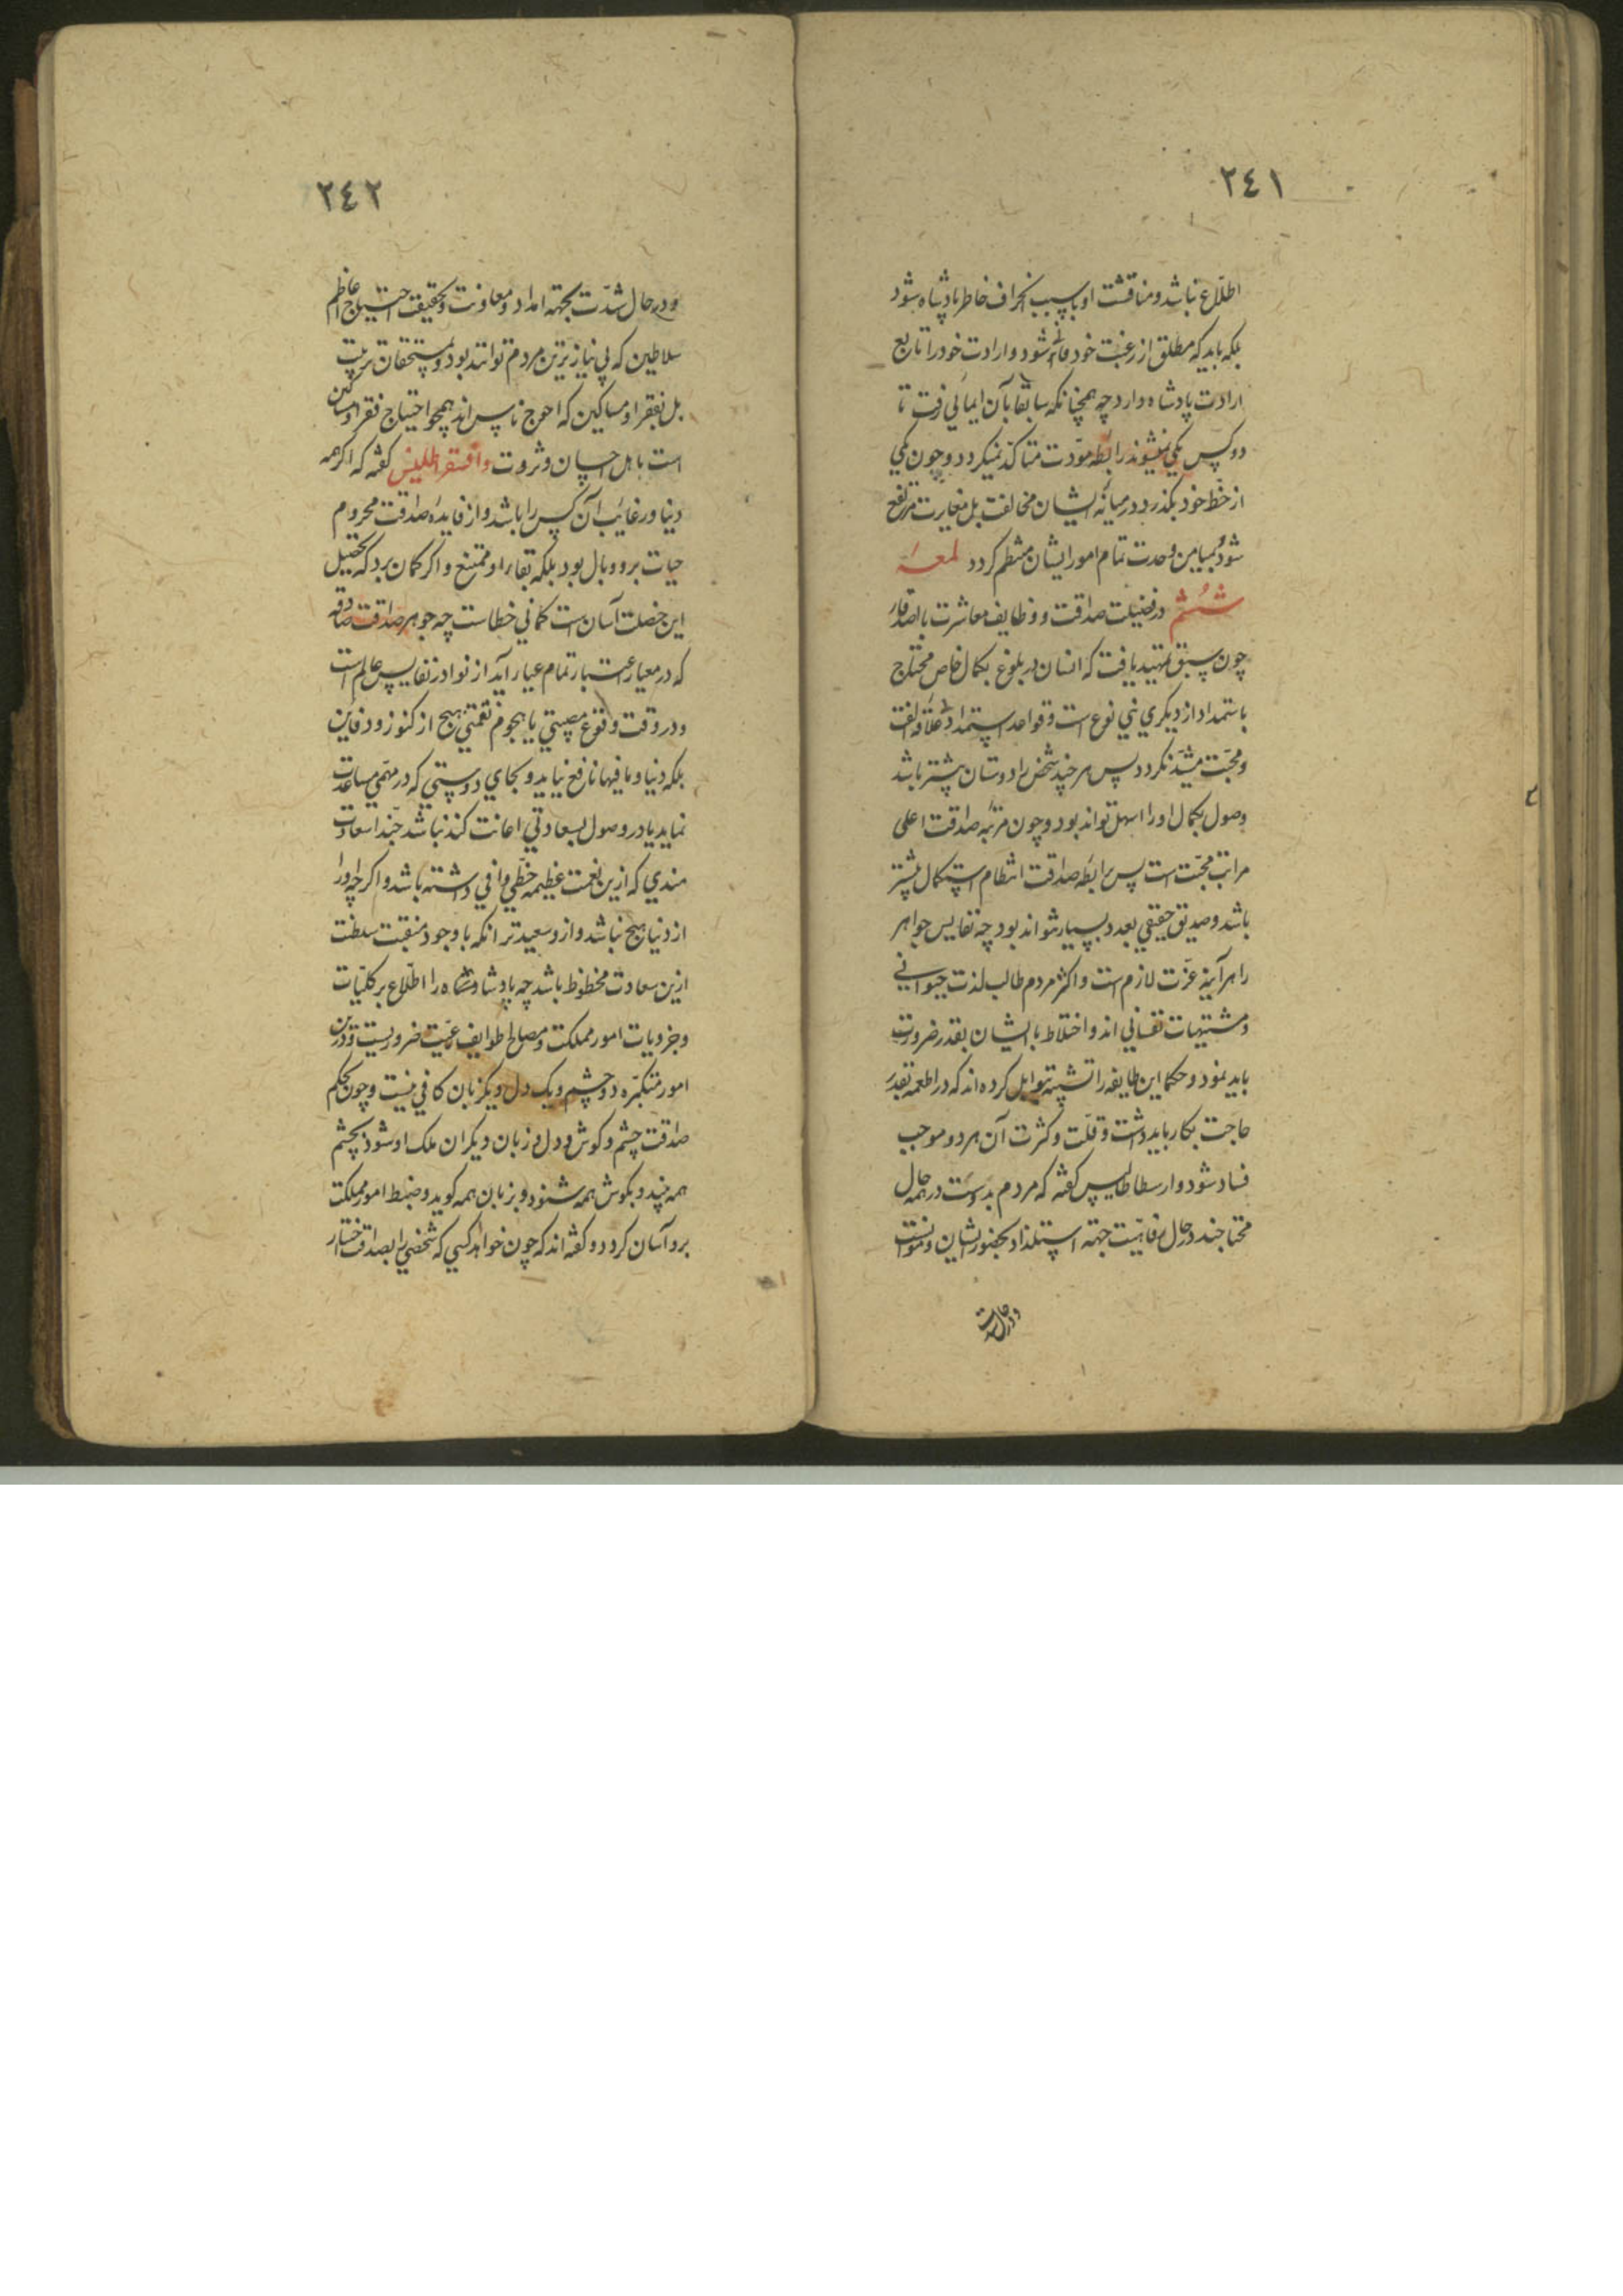 ٢٤١
اطلاع نباشد و مناقشت او با سبب انحراف خاطر پادشاه شود
بلکه باید که مطلق از رغبت خود فانی شود و ارادت خود را تابع
ارادت پادشاه دارد چه همچنانکه سابقا بآن ایمائی رفت تا
دو کس یکی نمیشوند رابطه مودّت متاکّد نمیکردد و چون یکی
از حظّ خود بکذرد در میانه ایشان مخالفت بل مغایرت مرتفع
شود و بمیامن وحدت تمام امور ایشان منتظم کردد لمعهٔ
ششم در فضیلت صداقت و وظایف معاشرت با اصدقا
چون سبق تمهید یافت که انسان در بلوغ بکمال خاص محتاج
باستمداد از دیکری بنی نوع است و قواعد استمداد علاقه الفت
و محبّت مشیّد نکردد پس هر چند شخص را دوستان بیشتر باشد
وصول بکمال او را اسهل تواند بود و چون مرتبه صداقت اعلی
مراتب محبّت است پس رابطه صداقت انتظام استکمال بیشتر
باشد و صدیق حقیقی بعدد بسیار نتواند بود چه نفایس جواهر
را هر آینه عزّت لازم است و اکثر مردم طالب لذت حیوانی
و مشتهیات نفسانی اند و اختلاط با ایشان بقدر ضرورت
باید نمود و حکما این طایفه را تشبیه بتوابل کرده اند که در اطعمه بقدر
حاجت بکار باید داشت و قلّت و کثرت آن هر دو موجب
فساد شود و ارسطاطالیس کفته که مردم بدوست در همه حال
محتاجند در حال رفاهیّت جهته استلذاذ بحضور ایشان و موانست
و در حال شدت
٢٤٢
و در حال شدّت بجهته امداد و معاونت و بحقیقت احتیاج اعاظم
سلاطین که بی نیازترین مردم توانند بود و بمستحقان تربیت
بل بفقرا و مساکین که احوج ناس اند همچو احتیاج فقرا و مساکین
است باهل احسان و ثروت و افسقراطلیس کفته که اکر همه
دنیا و رغائب آن کس را باشد و از فایده صداقت محروم
حیات برو وبال بود بلکه بقا را و ممتنع و اکر کمان برد که تحصیل
این خصلت آسان است کمانی خطاست چه جوهر صداقت صادقه
که در معیار اعتبار تمام عیار آید از نوادر نفایس عالم است
و در وقت وقوع مصیبتی یا هجوم نقمتی هیچ از کنوز و دفاین
بلکه دنیا و ما فیها نافع نیاید و بجای دوستی که در مهمّی مساعدت
نماید یا در وصول بسعادتی اعانت کند نباشد حبّذا سعادت
مندی که ازین نعمت عظیمه حظّی وافی داشته باشد و اکر چه او را
از دنیا هیچ نباشد و ازو سعیدتر آنکه با وجود منقبت سلطنت
ازین سعادت محظوظ باشد چه پادشاه را اطّلاع بر کلیّات
و جزویات امور مملکت و مصالح طوایف رعیّت ضروریست و درین
امور متکثّره دو چشم و یک دل و یک زبان کافی نیست و چون بحکم
صداقت چشم و کوش و دل و زبان دیکران ملک او شود بچشم
همه بیند و بکوش همه شنود و بزبان همه کوید و ضبط امور مملکت
برو آسان کردد و کفته اند که چون خواهد کسی که شخصی را بصداقت اختیار